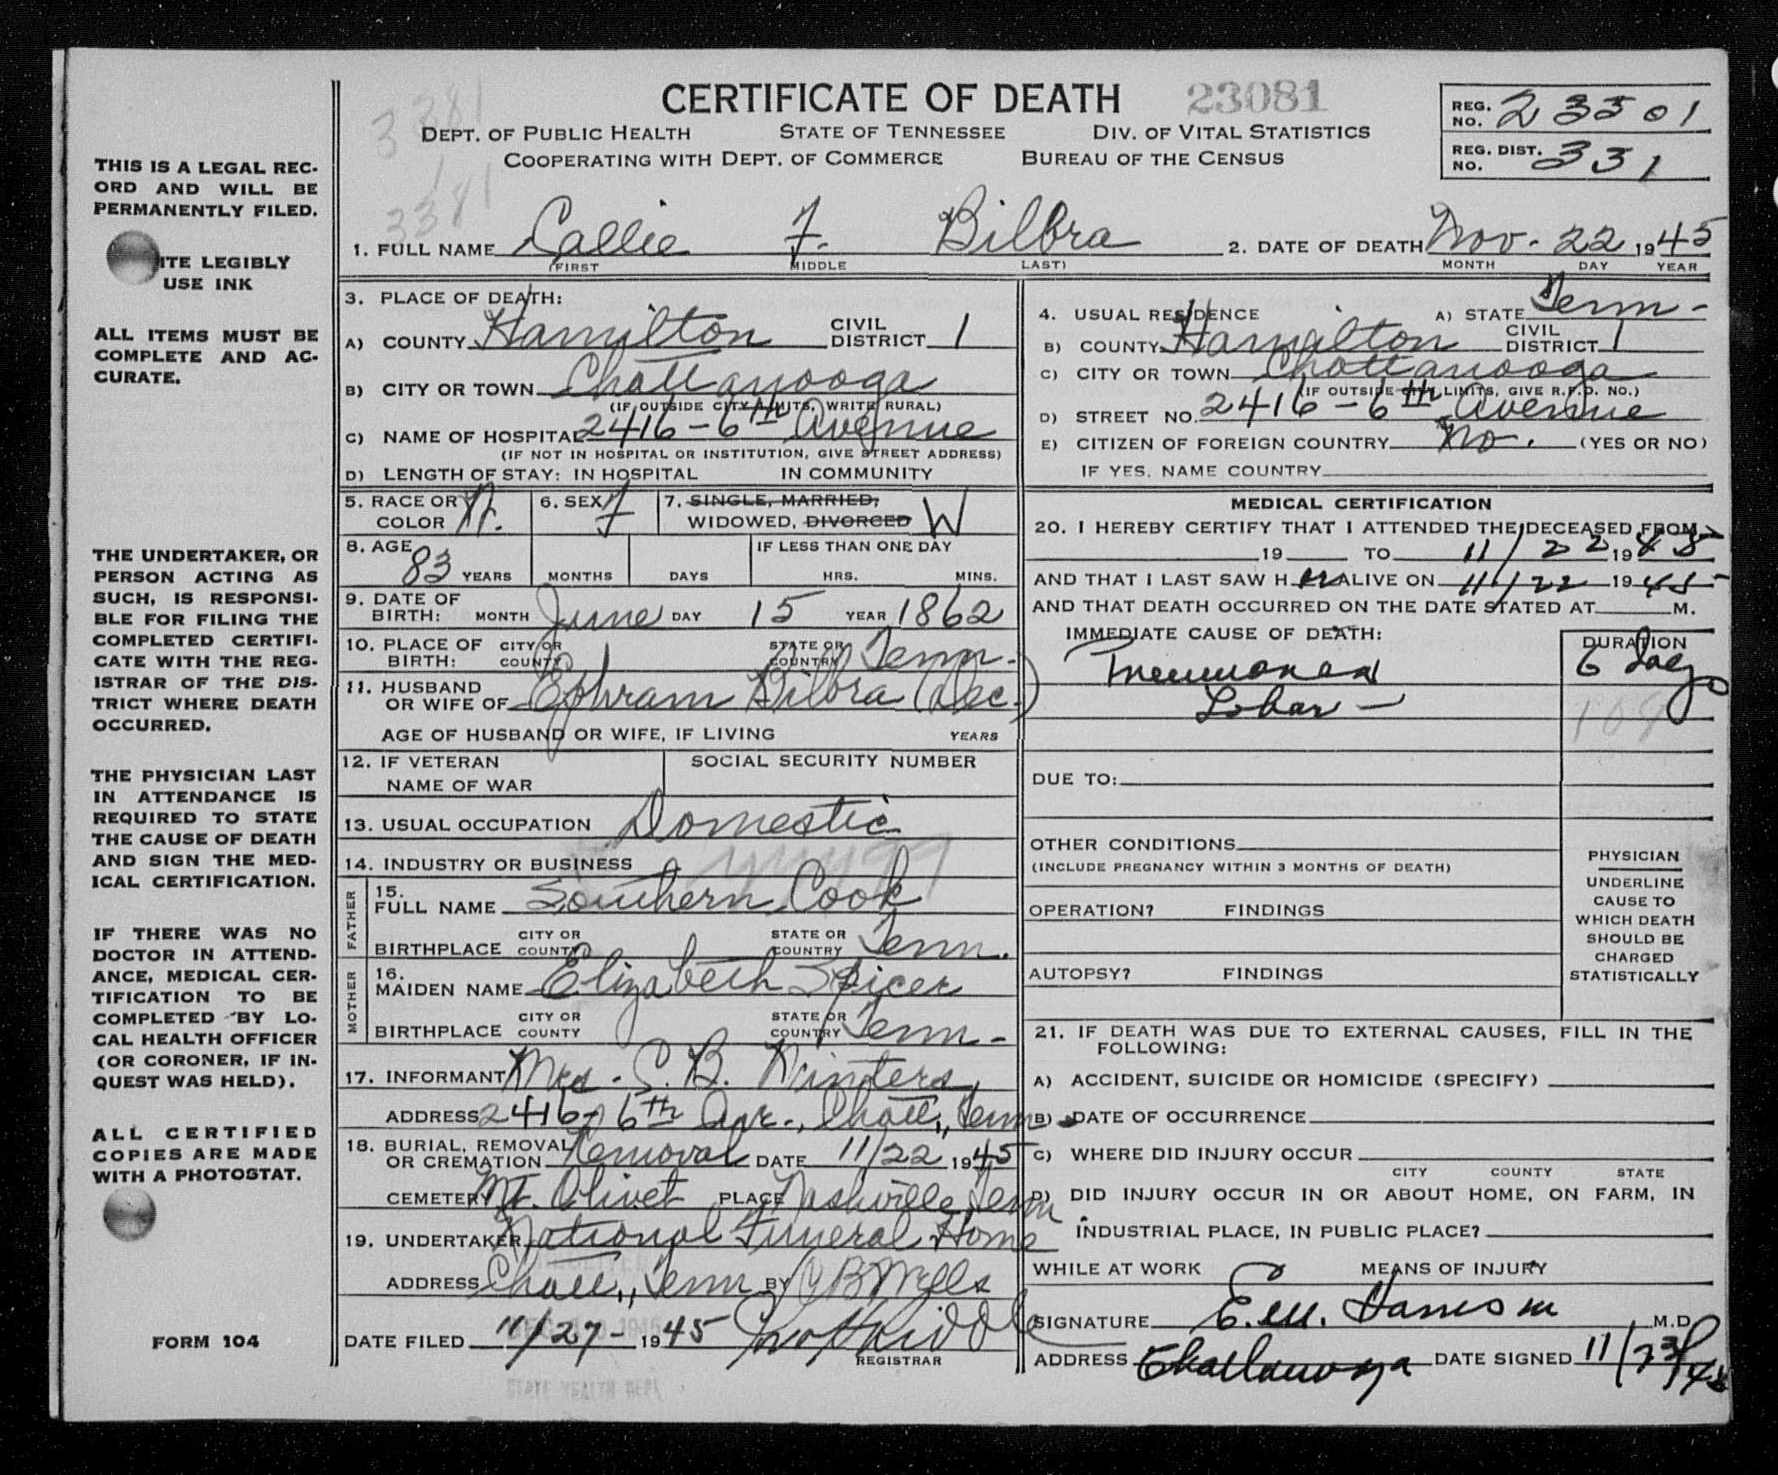 CERTIFICATE OF DEATH 23081
DEPT. OF PUBLIC HEALTH STATE OF TENNESSEE DIV. OF VITAL STATISTICS
COOPERATING WITH DEPT. OF COMMERCE BUREAU OF THE CENSUS
REG. NO. 23501
REG. DIST. NO. 331
3381
1
3381
THIS IS A LEGAL REC-
ORD AND WILL BE
PERMANENTLY FILED.
ITE LEGIBLY
USE INK
ALL ITEMS MUST BE
COMPLETE AND AC-
CURATE.
THE UNDERTAKER, OR
PERSON ACTING AS
SUCH, IS RESPONSI-
BLE FOR FILING THE
COMPLETED CERTIFI-
CATE WITH THE REG-
ISTRAR OF THE DIS-
TRICT WHERE DEATH
OCCURRED.
THE PHYSICIAN LAST
IN ATTENDANCE IS
REQUIRED TO STATE
THE CAUSE OF DEATH
AND SIGN THE MED-
ICAL CERTIFICATION.
IF THERE WAS NO
DOCTOR IN ATTEND-
ANCE, MEDICAL CER-
TIFICATION TO BE
COMPLETED BY LO-
CAL HEALTH OFFICER
(OR CORONER, IF IN-
QUEST WAS HELD).
ALL CERTIFIED
COPIES ARE MADE
WITH A PHOTOSTAT.
FORM 104
1. FULL NAME Callie F. Bilbra 2. DATE OF DEATH Nov. 22 1945
(FIRST MIDDLE LAST) MONTH DAY YEAR
3. PLACE OF DEATH:
A) COUNTY Hamilton CIVIL DISTRICT 1
B) CITY OR TOWN Chattanooga
(IF OUTSIDE CITY LIMITS, WRITE RURAL)
C) NAME OF HOSPITAL 2416-6th Avenue
(IF NOT IN HOSPITAL OR INSTITUTION, GIVE STREET ADDRESS)
D) LENGTH OF STAY: IN HOSPITAL IN COMMUNITY
5. RACE OR COLOR 6. SEX F 7. SINGLE, MARRIED,
WIDOWED, DIVORCED W
8. AGE 83 YEARS MONTHS DAYS IF LESS THAN ONE DAY HRS. MINS.
9. DATE OF BIRTH: MONTH June DAY 15 YEAR 1862
10. PLACE OF BIRTH: CITY OR COUNTY STATE OR COUNTRY Tenn.
11. HUSBAND OR WIFE OF Ephram Bilbra (Dec.)
AGE OF HUSBAND OR WIFE, IF LIVING YEARS
12. IF VETERAN NAME OF WAR SOCIAL SECURITY NUMBER
13. USUAL OCCUPATION Domestic
14. INDUSTRY OR BUSINESS
FATHER
15. FULL NAME Southern Cook
BIRTHPLACE CITY OR COUNTY STATE OR COUNTRY Tenn.
MOTHER
16. MAIDEN NAME Elizabeth Spicer
BIRTHPLACE CITY OR COUNTY STATE OR COUNTRY Tenn-
17. INFORMANT Mrs. C. B. Winters
ADDRESS 2416-6th Ave., Chatt., Tenn
18. BURIAL, REMOVAL OR CREMATION Removal DATE 11/22 1945
CEMETERY Mt. Olivet PLACE Nashville, Tenn.
19. UNDERTAKER National Funeral Home
ADDRESS Chatt., Tenn BY C B Wells
DATE FILED 11/27- 1945
REGISTRAR
STATE HEALTH DEPT
4. USUAL RESIDENCE A) STATE Tenn-
B) COUNTY Hamilton CIVIL DISTRICT 1
C) CITY OR TOWN Chattanooga
(IF OUTSIDE CITY LIMITS, GIVE R.F.D. NO.)
D) STREET NO. 2416-6th Avenue
E) CITIZEN OF FOREIGN COUNTRY No. (YES OR NO)
IF YES, NAME COUNTRY
MEDICAL CERTIFICATION
20. I HEREBY CERTIFY THAT I ATTENDED THE DECEASED FROM
19 TO 11/22 1945
AND THAT I LAST SAW H er ALIVE ON 11/22 1945
AND THAT DEATH OCCURRED ON THE DATE STATED AT M.
IMMEDIATE CAUSE OF DEATH: DURATION
Pneumonia 6 days
Lobar - 108
DUE TO:
OTHER CONDITIONS
(INCLUDE PREGNANCY WITHIN 3 MONTHS OF DEATH)
OPERATION? FINDINGS
AUTOPSY? FINDINGS
PHYSICIAN
UNDERLINE
CAUSE TO
WHICH DEATH
SHOULD BE
CHARGED
STATISTICALLY
21. IF DEATH WAS DUE TO EXTERNAL CAUSES, FILL IN THE
FOLLOWING:
A) ACCIDENT, SUICIDE OR HOMICIDE (SPECIFY)
B) DATE OF OCCURRENCE
C) WHERE DID INJURY OCCUR
CITY COUNTY STATE
D) DID INJURY OCCUR IN OR ABOUT HOME, ON FARM, IN
INDUSTRIAL PLACE, IN PUBLIC PLACE?
WHILE AT WORK MEANS OF INJURY
SIGNATURE M.D.
ADDRESS Chattanooga DATE SIGNED 11/23/45